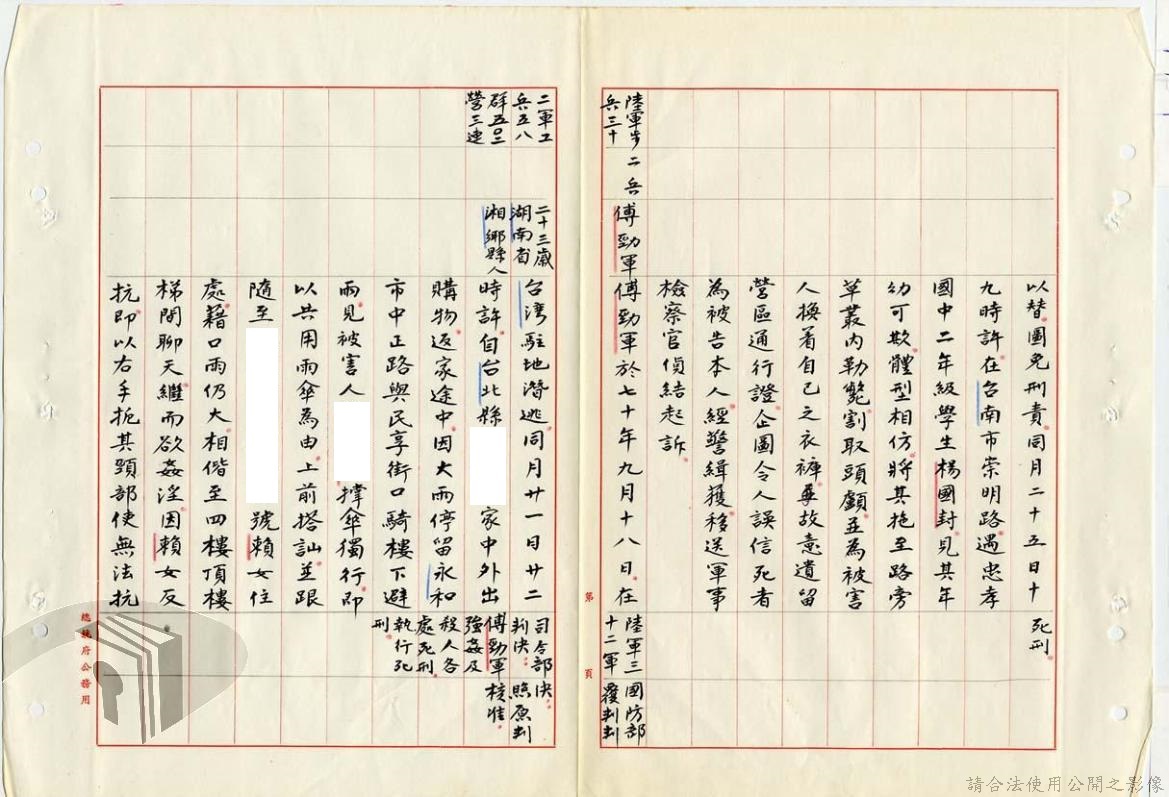 以替圖免刑責。同月二十五日十
死刑
九時許在台南市崇明路遇忠孝
國中二年級學生楊國封。見其年
幼可欺。體型相仿。將其拖至路旁
草叢內勒斃。割取頭顱。並為被害
人換着自己之衣褲。並故意遺留
營區通行證。企圖令人誤信死者
為被告本人。經警緝獲。移送軍事
檢察官偵結起訴。
陸軍步
兵三十
二兵
傅勁軍
傅勁軍於七十年九月十八日。在
陸軍三
十二軍
國防部
覆判判
第 頁
二軍工
兵五八
群五〇三
營三連
二十三歲
湖南省
湘鄉縣人
台灣駐地潛逃。同月廿一日廿二
時許。自台北縣
家中外出
購物。返家途中。因大雨停留永和
市中正路與民享街口騎樓下避
雨。見被害人
撐傘獨行。即
以共用雨傘為由。上前搭訕並跟
隨至
號賴女住
處。籍口雨仍大。相偕至四樓頂樓
梯間聊天。繼而欲姦淫。因賴女反
抗。即以右手扼其頸部使無法抗
司令部
判決。
傅勁軍
強姦及
殺人各
處死刑。
執行死
刑。
決。
照原判
核准。
總統府公務用
請合法使用公開之影像